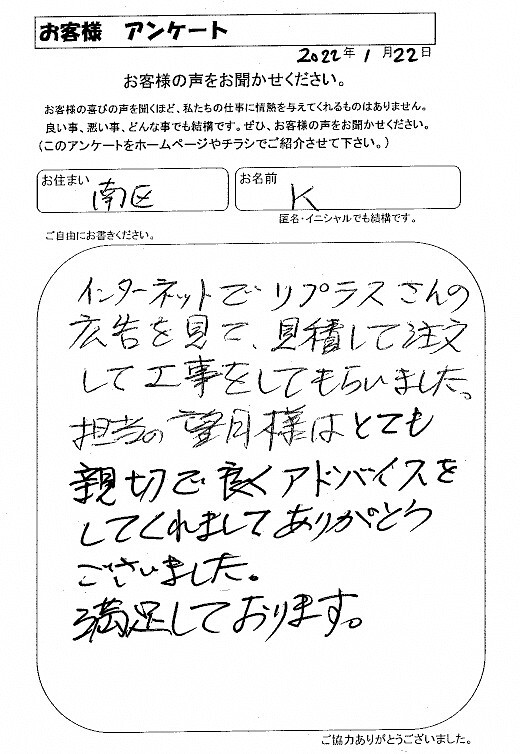 お客様　アンケート
2022年1月22日
お客様の声をお聞かせください。
お客様の喜びの声を聞くほど、私たちの仕事に情熱を与えてくれるものはありません。
良い事、悪い事、どんな事でも結構です。ぜひ、お客様の声をお聞かせください。
(このアンケートをホームページやチラシでご紹介させて下さい。)
お住まい 南区 お名前 K
匿名・イニシャルでも結構です。
ご自由にお書きください。
インターネットでリプラスさんの
広告を見て、見積して注文
して工事をしてもらいました。
担当の望月様はとても
親切で良くアドバイスを
してくれましてありがとう
ございました。
満足しております。
ご協力ありがとうございました。